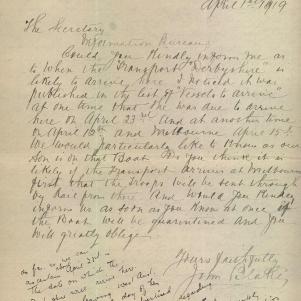 April 1st 1919
The Secretary
Information Bureau
Could you Kindly inform me as
to when the Transport "Derbyshire" is
likely to arrive here. I noticed it was
published in the list of "Vessels to arrive"
at one time that she was due to arrive
here on April 23rd and at another time
on April 18th and Melbourne April 15th
We would particularly like to know as our
Son is on that Boat. Do you think it is
likely if the Transport arrives at Melbourne
first that the Troops will be sent through
by Rail from there. And would you Kindly
inform us as soon as you know at once if
the Boat will be quarantined and you
will greatly oblige
Yours faithfully
John
as far as we can
ascertain April 23rd is
the date on which the
will arrive here